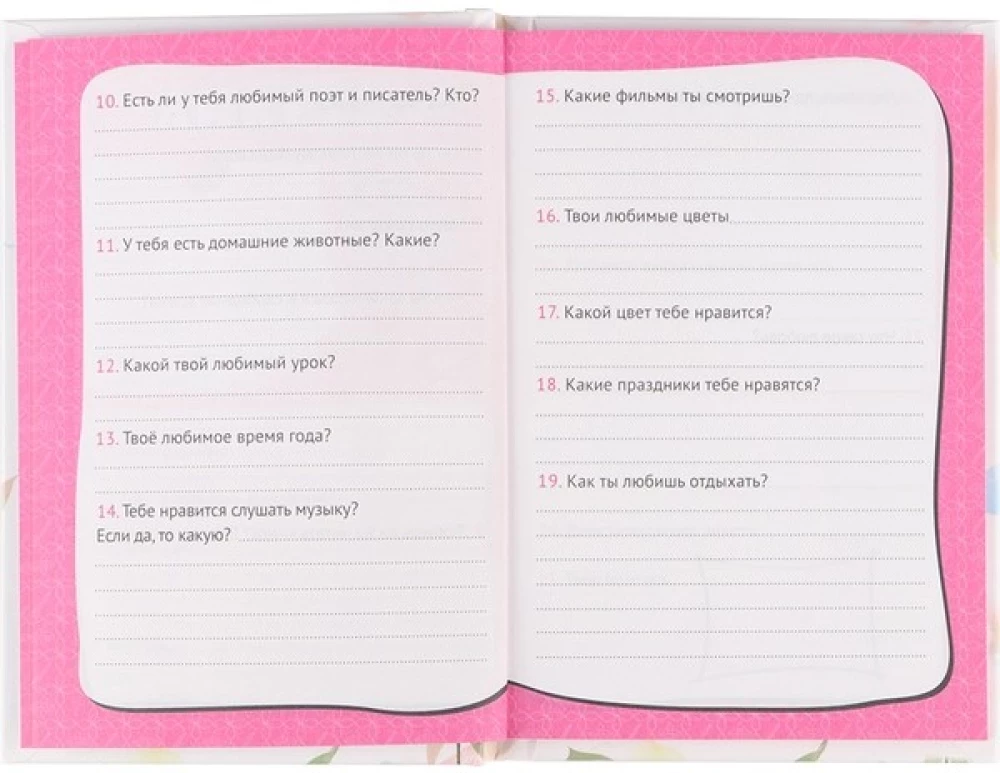 10. Есть ли у тебя любимый поэт и писатель? Кто?
11. У тебя есть домашние животные? Какие?
12. Какой твой любимый урок?
13. Твоё любимое время года?
14. Тебе нравится слушать музыку?
Если да, то какую?
15. Какие фильмы ты смотришь?
16. Твои любимые цветы
17. Какой цвет тебе нравится?
18. Какие праздники тебе нравятся?
19. Как ты любишь отдыхать?